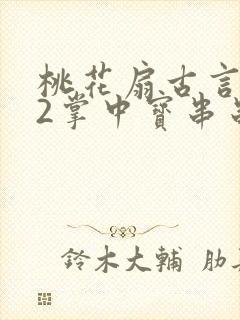 桃花扇古言
2掌中寳串
鈴木大輔 肋